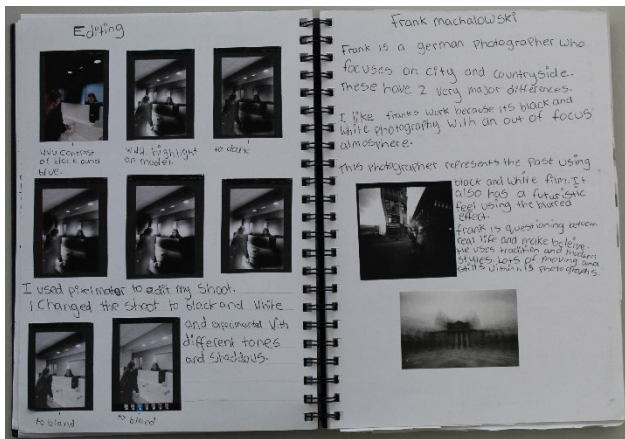 Editing
contrast
of black and
blue.
Add highlight
on model.
to dark
I used pixelmator to edit my shoot.
I changed the shoot to black and white
and experimental with
different tones
and shaddous.
to bland
to bland
Frank machalowski
Frank is a german photographer who
focuses on city and countryside.
these have 2 very major differences.
I like franks work because its black and
white photography with an out of focus
atmosphere.
This photographer represents the past using
black and white film. It
also has a futuristic
feel using the blured
effect.
frank is questioning between
real life and make beleive.
He uses tradition and modern
styles. Lots of moving and
stills within is photographs.